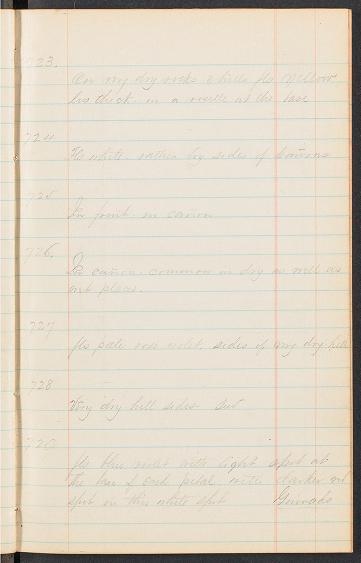 723.
On very dry rocks & hills fls yellow
lvs thick in a rosette at the base
724
Fls white. rather by sides of cañons
725
In fruit in cañon
726.
In cañon common in dry as well as
wet places.
727
fls pale rose violet. sides of very dry hill
728
Very dry hill sides
729
fls blue violet with light spot at
the base of each petal with darker
spot in this white spot